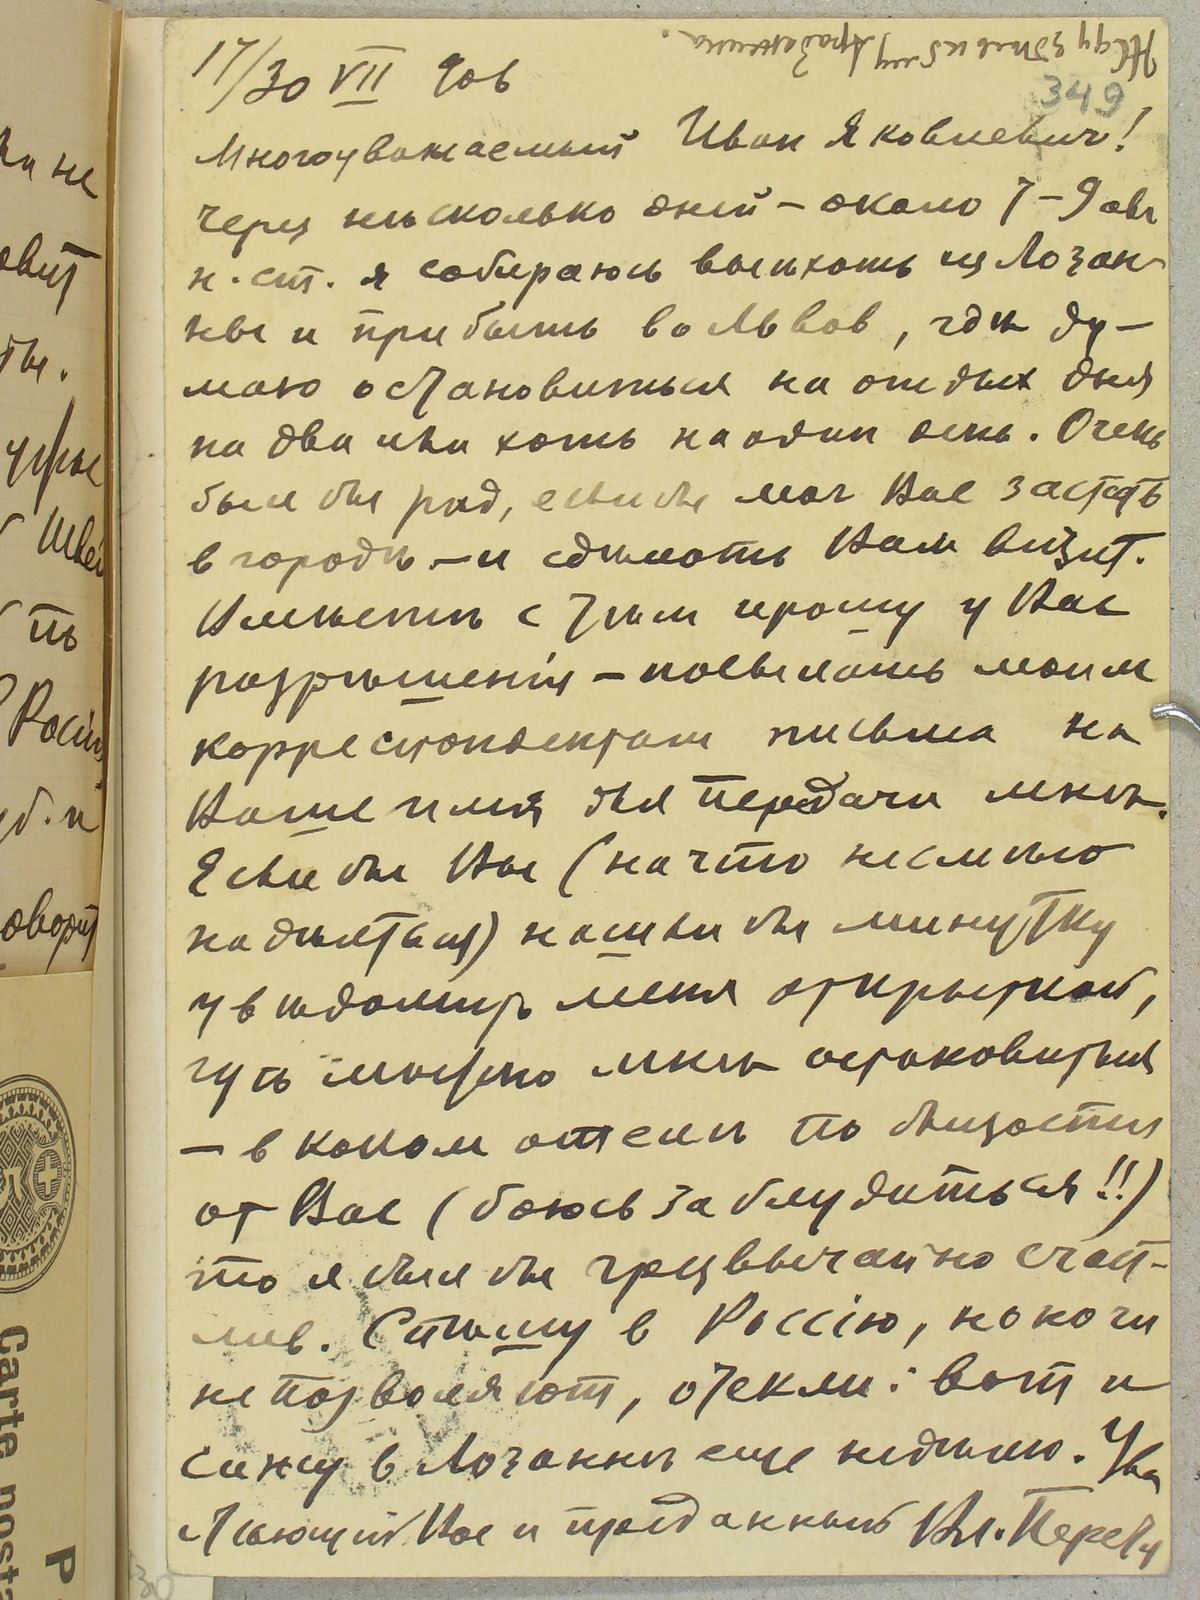 17/30 VII 906
349
Многоуважаемый Иван Яковлевич!
Через нѣсколько дней – около 7–9 авг
н. ст. я собираюсь выѣхать из Лозан-
ны и прибыть во Львов, гдѣ ду-
маю остановиться на отдых дня
на два или хоть на один день. Очень
был бы рад, если бы мог Вас застать
в городѣ – и сдѣлать Вам визит.
Вмѣстѣ с тѣм прошу у Вас
разрѣшенія – посылать моим
корреспондентам письма на
Ваше имя для передачи мнѣ.
Если бы Вы (на что не смѣю
надѣяться) нашли бы минутку
увѣдомить меня открыткой,
гдѣ можно мнѣ остановиться
– в каком отелѣ по близости
от Вас (боюсь заблудиться!!)
то я был бы чрезвычайно счаст-
лив. Спѣшу в Россію, но ноги
не позволяют, отекли: вот и
сижу в Лозаннѣ еще недѣлю. Ува
жающий Вас и преданный Вл. Перетц
ни не
овит
ты.
Швей
пѣ
Росси
уб. и
оворит
Carte posta
P
30